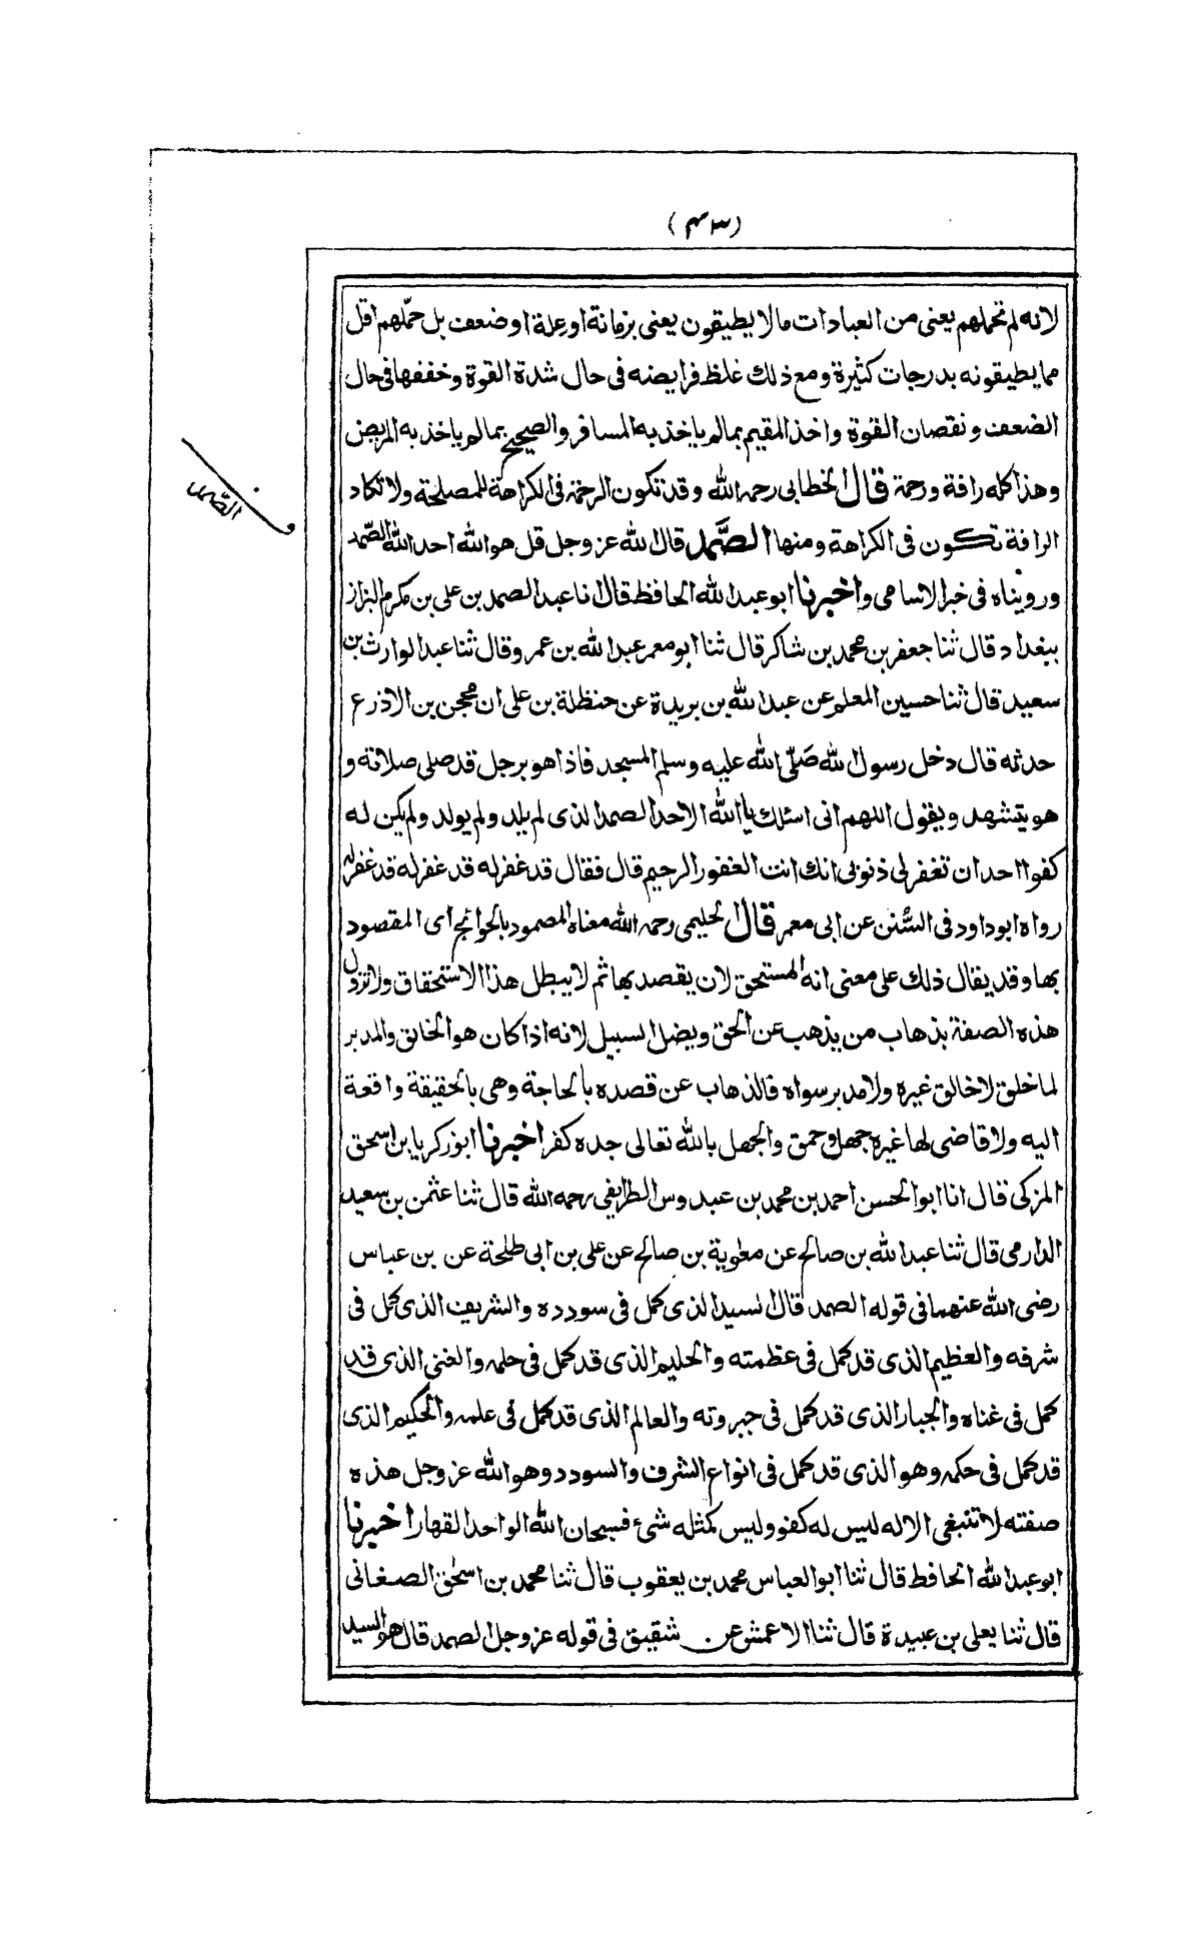 (٤٣)
لانه لم تحملهم يعنى من العبادات مالا يطيقون يعنى بزمانة او علة او ضعف بل حملهم اقل
مما يطيقونه بدرجات كثيرة ومع ذلك غلظ فرايضه فى حال شدة القوة وخففها فى حال
الضعف ونقصان القوة واخذ المقيم بمالم ياخذ به المسافر والصحيح بمالم ياخذ به المريض
وهذا كله رافة ورحمة قال الخطابى رحمه الله وقد تكون الرحمة فى الكراهة للمصلحة ولا تكاد
الرافة تكون فى الكراهة ومنها الصَّمد قال الله عز وجل قل هو الله احد الله الصّمد
و الصّمد
ورويناه فى خبر الاسامى واخبرنا ابو عبد الله الحافظ قال انا عبد الصمد بن على بن مكرم البزاز
ببغداد قال ثنا جعفر بن محمد بن شاكر قال ثنا ابو معمر عبد الله بن عمرو قال ثنا عبد الوارث بن
سعيد قال ثنا حسين المعلم عن عبد الله بن بريدة عن حنظلة بن على ان محجن بن الاذرع
حدثه قال دخل رسول الله صَلّى الله عليه وسلم المسجد فاذا هو برجل قد صلى صلاته و
هو يتشهد ويقول اللهم انى اسئلك يا الله الاحد الصمد الذى لم يلد ولم يولد ولم يكن له
كفوا احد ان تغفر لى ذنوبى انك انت الغفور الرحيم قال فقال قد غفر له قد غفر له قد غفر له
رواه ابو داود فى السُّنن عن ابى معمر قال الحليمى رحمه الله معناه المصمود بالحوائج اى المقصود
بها وقد يقال ذلك على معنى انه المستحق لان يقصد بها ثم لا يبطل هذا الاستحقاق ولا تزول
هذه الصفة بذهاب من يذهب عن الحق ويضل السبيل لانه اذا كان هو الخالق والمدبر
لما خلق لا خالق غيره ولا مدبر سواه فالذهاب عن قصده بالحاجة وهى بالحقيقة واقعة
اليه ولا قاضى لها غيره جهل وحمق والجهل بالله تعالى جده كفر اخبرنا ابو زكريا بن اسحق
المزكى قال انا ابو الحسن احمد بن محمد بن عبدوس الطرايفى رحمه الله قال ثنا عثمن بن سعيد
الدارمى قال ثنا عبد الله بن صالح عن معٰوية بن صالح عن على بن ابى طلحة عن بن عباس
رضى الله عنهما فى قوله الصمد قال السيد الذى كمل فى سودده والشريف الذى كمل فى
شرفه والعظيم الذى قد كمل فى عظمته والحليم الذى قد كمل فى حلمه والغنى الذى قد
كمل فى غناه والجبار الذى قد كمل فى جبروته والعالم الذى قد كمل فى علمه والحكيم الذى
قد كمل فى حكمه وهو الذى قد كمل فى انواع الشرف والسودد وهو الله عز وجل هذه
صفته لا تنبغى الا له ليس له كفو وليس كمثله شئ فسبحان الله الواحد القهار اخبرنا
ابو عبد الله الحافظ قال ثنا ابو العباس محمد بن يعقوب قال ثنا محمد بن اسحٰق الصغانى
قال ثنا يعلى بن عبيدة قال ثنا الاعمش عن شقيق فى قوله عز وجل الصمد قال هو السيد